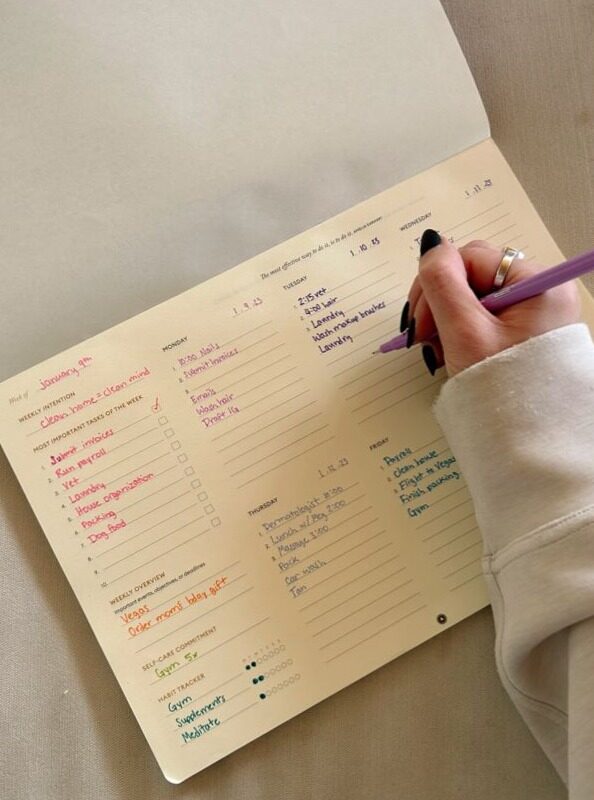 Week of January 9th
WEEKLY INTENTION
clean home = clean mind
MOST IMPORTANT TASKS OF THE WEEK
1. Submit invoices
2. Run payroll
3. Vet
4. Laundry
5. House organization
6. Packing
7. Dog food
8.
9.
10.
WEEKLY OVERVIEW
Important events, objectives, or deadlines
Vegas
Order moms bday gift
SELF-CARE COMMITMENT
Gym 5x
HABIT TRACKER
Gym
Supplements
Meditate
The most effective way to do it, is to do it.
1.9.23
MONDAY
1. 10:30 Nails
2. Submit Invoices
3.
Emails
Wash hair
Draft
1.10.23
TUESDAY
1. 2:15 vet
2. 4:00 hair
3. Laundry
Wash makeup brushes
Laundry
1.11.23
WEDNESDAY
1.
1.12.23
THURSDAY
1. Dermatologist
2. Lunch w/ Meg 2:00
3. Massage
Pack
Car wash
Tan
FRIDAY
1. Payroll
2. clean house
3. Flight to Vegas
Finish packing
Gym